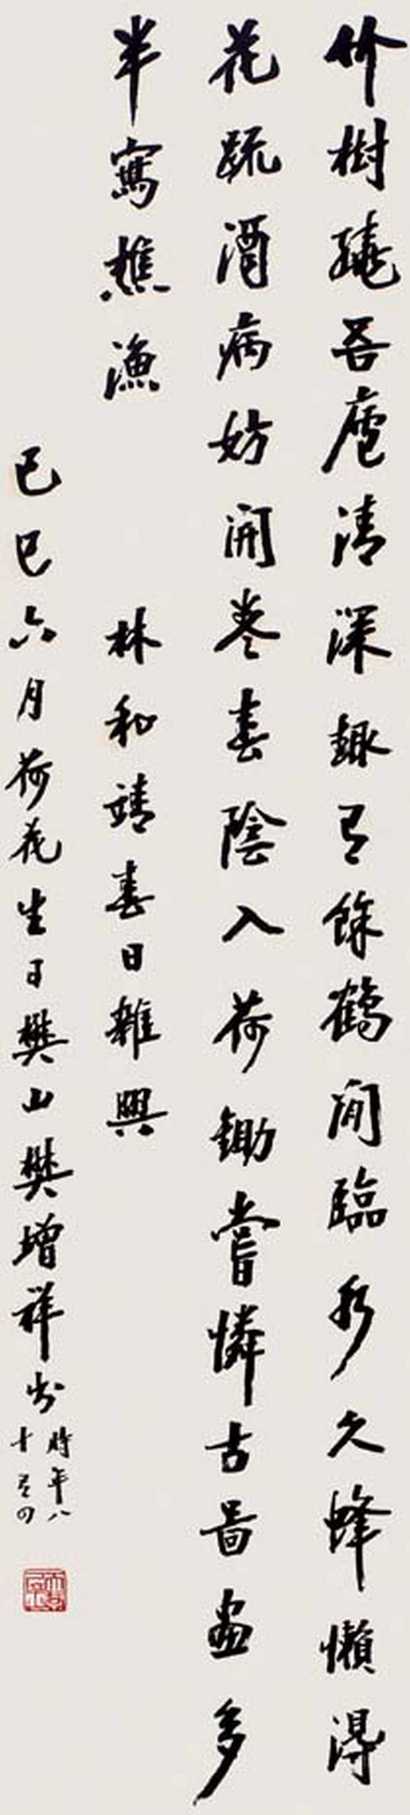 竹樹繞吾廬清深趣有餘鶴閒臨水久蜂懶得
花疏酒病妨開卷春陰入荷鋤嘗憐古啚畫多
半寫樵漁
林和靖春日雜興
己巳六月荷花生日樊山樊增祥書
時年八
十有四